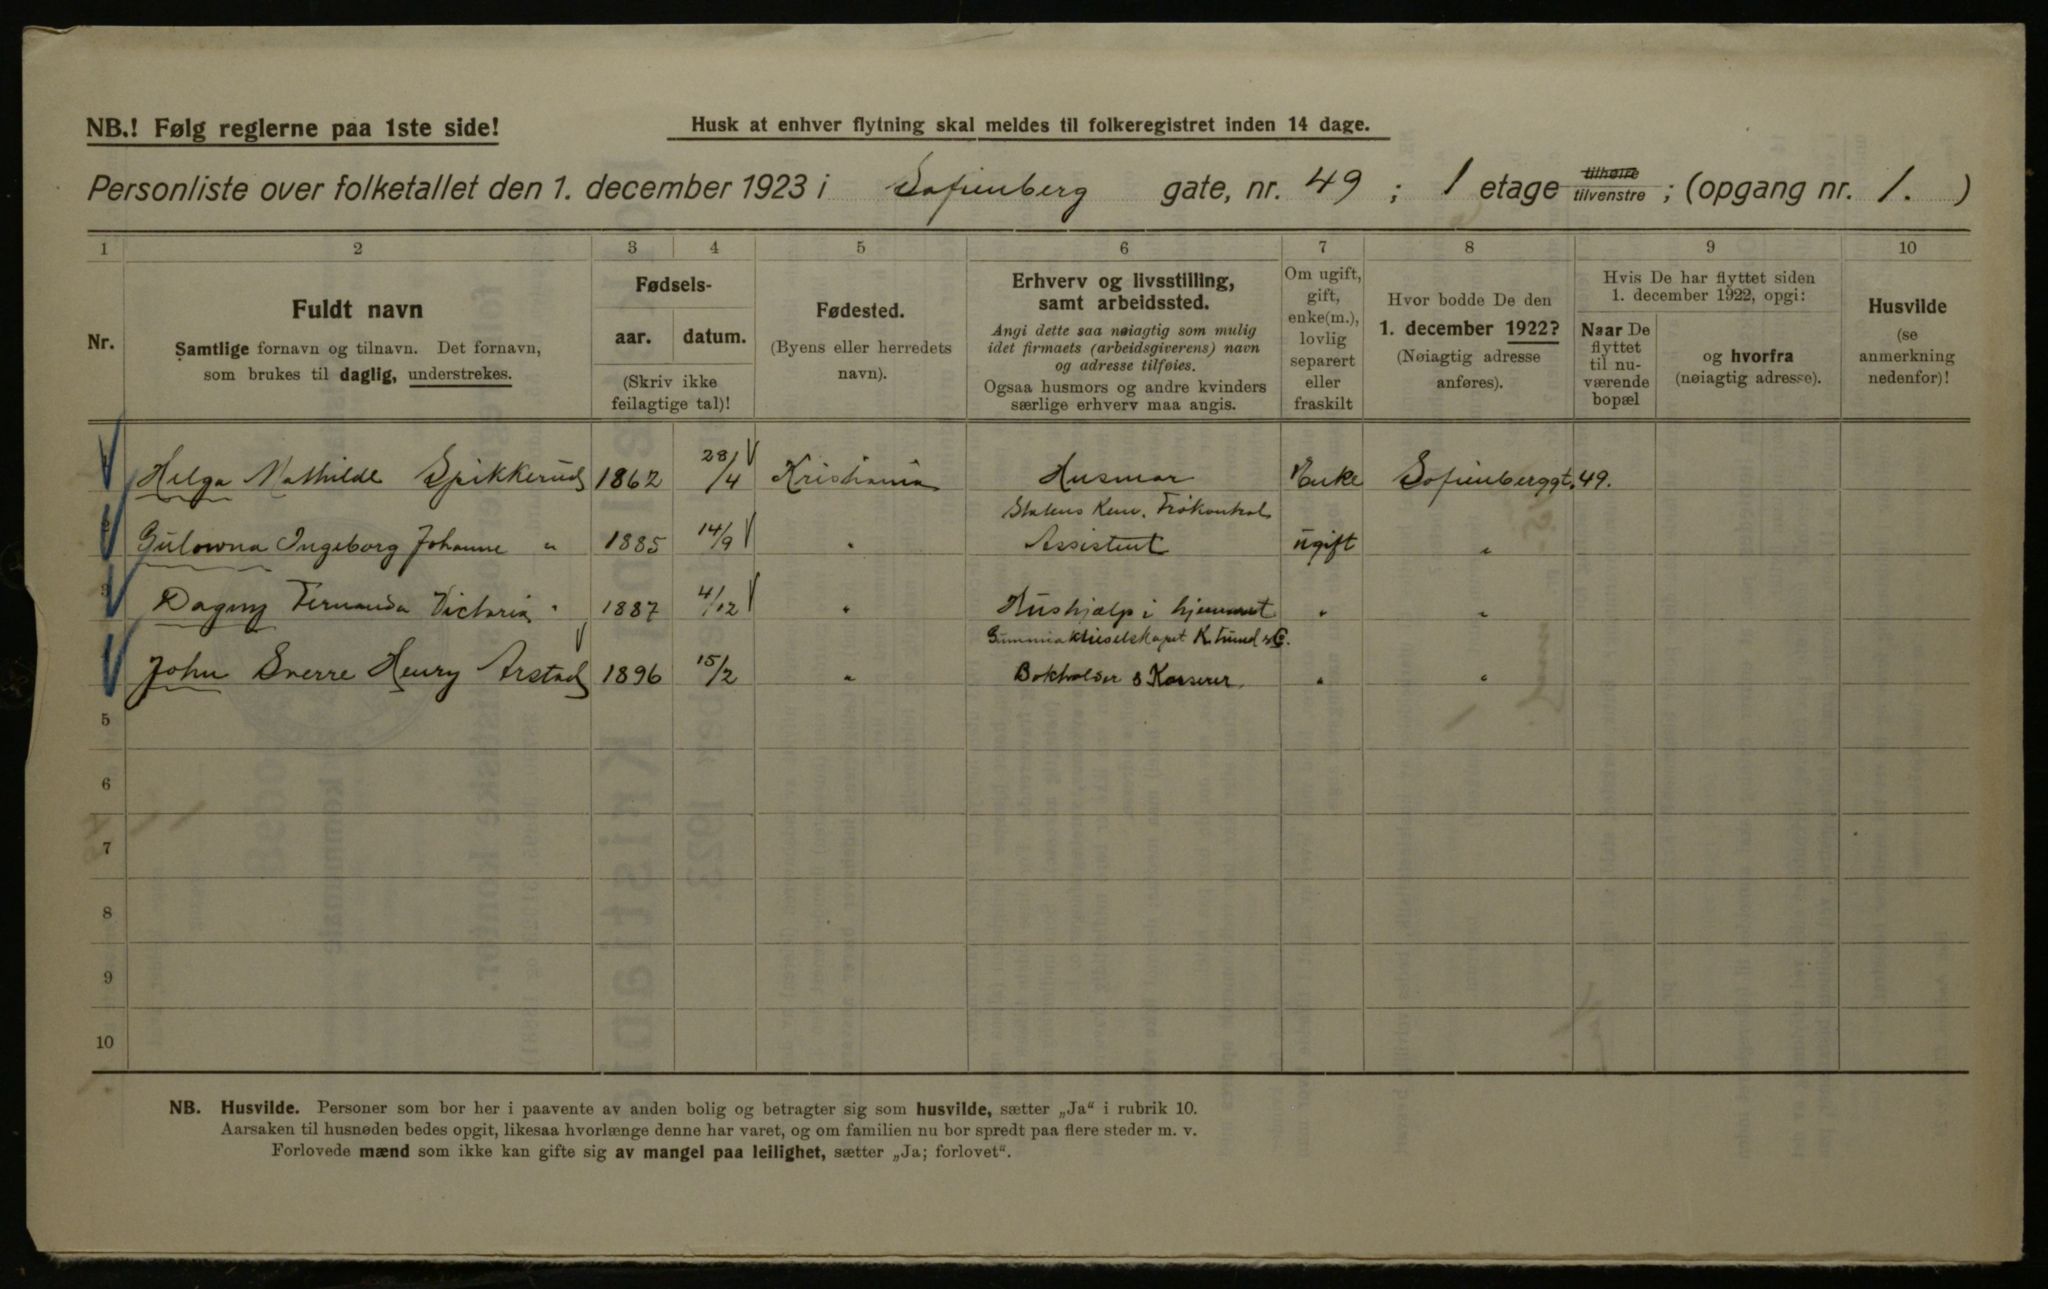 NB.! Følg reglerne paa 1ste side!
Husk at enhver flytning skal meldes til folkeregistret inden 14 dage.
Personliste over folketallet den 1. december 1923 i Sofienberg gate, nr. 49 ; 1 etage tilhøire tilvenstre ; (opgang nr. 1. )
1 2 3 4 5 6 7 8 9 10
Nr.
Fuldt navn
Samtlige fornavn og tilnavn. Det fornavn,
som brukes til daglig, understrekes.
Fødsels-
aar. datum.
(Skriv ikke
feilagtige tal)!
Fødested.
(Byens eller herredets
navn).
Erhverv og livsstilling,
samt arbeidssted.
Angi dette saa nøiagtig som mulig
idet firmaets (arbeidsgiverens) navn
og adresse tilføies.
Ogsaa husmors og andre kvinders
særlige erhverv maa angis.
Om ugift,
gift,
enke(m.),
lovlig
separert
eller
fraskilt
Hvor bodde De den
1. december 1922?
(Nøiagtig adresse
anføres).
Hvis De har flyttet siden
1. december 1922, opgi:
Naar De
flyttet
til nu-
værende
bopæl
og hvorfra
(nøiagtig adresse).
Husvilde
(se
anmerkning
nedenfor)!
Helga Mathilde Spikkerud 1862 28/4 Kristiania Husmor Enke Sofienberggt. 49.
Statens Kem. Frøkontrol
Gulowna Ingeborg Johanne " 1885 14/9 " Assistent ugift "
3 Dagny Fernanda Victoria " 1887 4/12 " Hushjælp i hjemmet " "
Gummiaktieselskapet
John Sverre Henry Arstad 1896 15/2 " Bokholder & Kasserer " "
5
6
7
8
9
10
NB. Husvilde. Personer som bor her i paavente av anden bolig og betragter sig som husvilde, sætter „Ja“ i rubrik 10.
Aarsaken til husnøden bedes opgit, likesaa hvorlænge denne har varet, og om familien nu bor spredt paa flere steder m. v.
Forlovede mænd som ikke kan gifte sig av mangel paa leilighet, sætter „Ja; forlovet“.